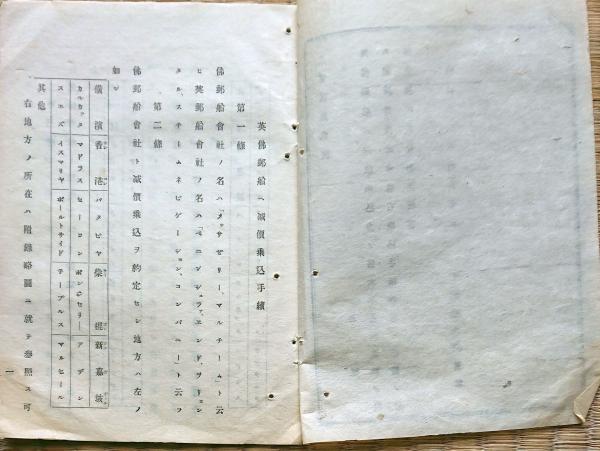 英佛郵船ヘ減價乗込手續
第一條
佛郵船會社ノ名ハ「メッサゼリー、マルチーム」ト云
ヒ英郵船會社ノ名ハ「ペニンシュラア、エンド、ヲリエン
タルスチームネビゲーション、コンパニー」ト云フ
第二條
佛郵船會社ト減價乗込ヲ約定セシ地方ハ左ノ
如シ
横濱 香港 バタビヤ 柴棍 新嘉坡
カルカッタ マドラス セーロン ポンヂセリー アデン
スエズ イスマリヤ ポールトサイド ナープルス マルセール
其他
右地方ノ所在ハ附録略圖ニ就テ參照ス可
一